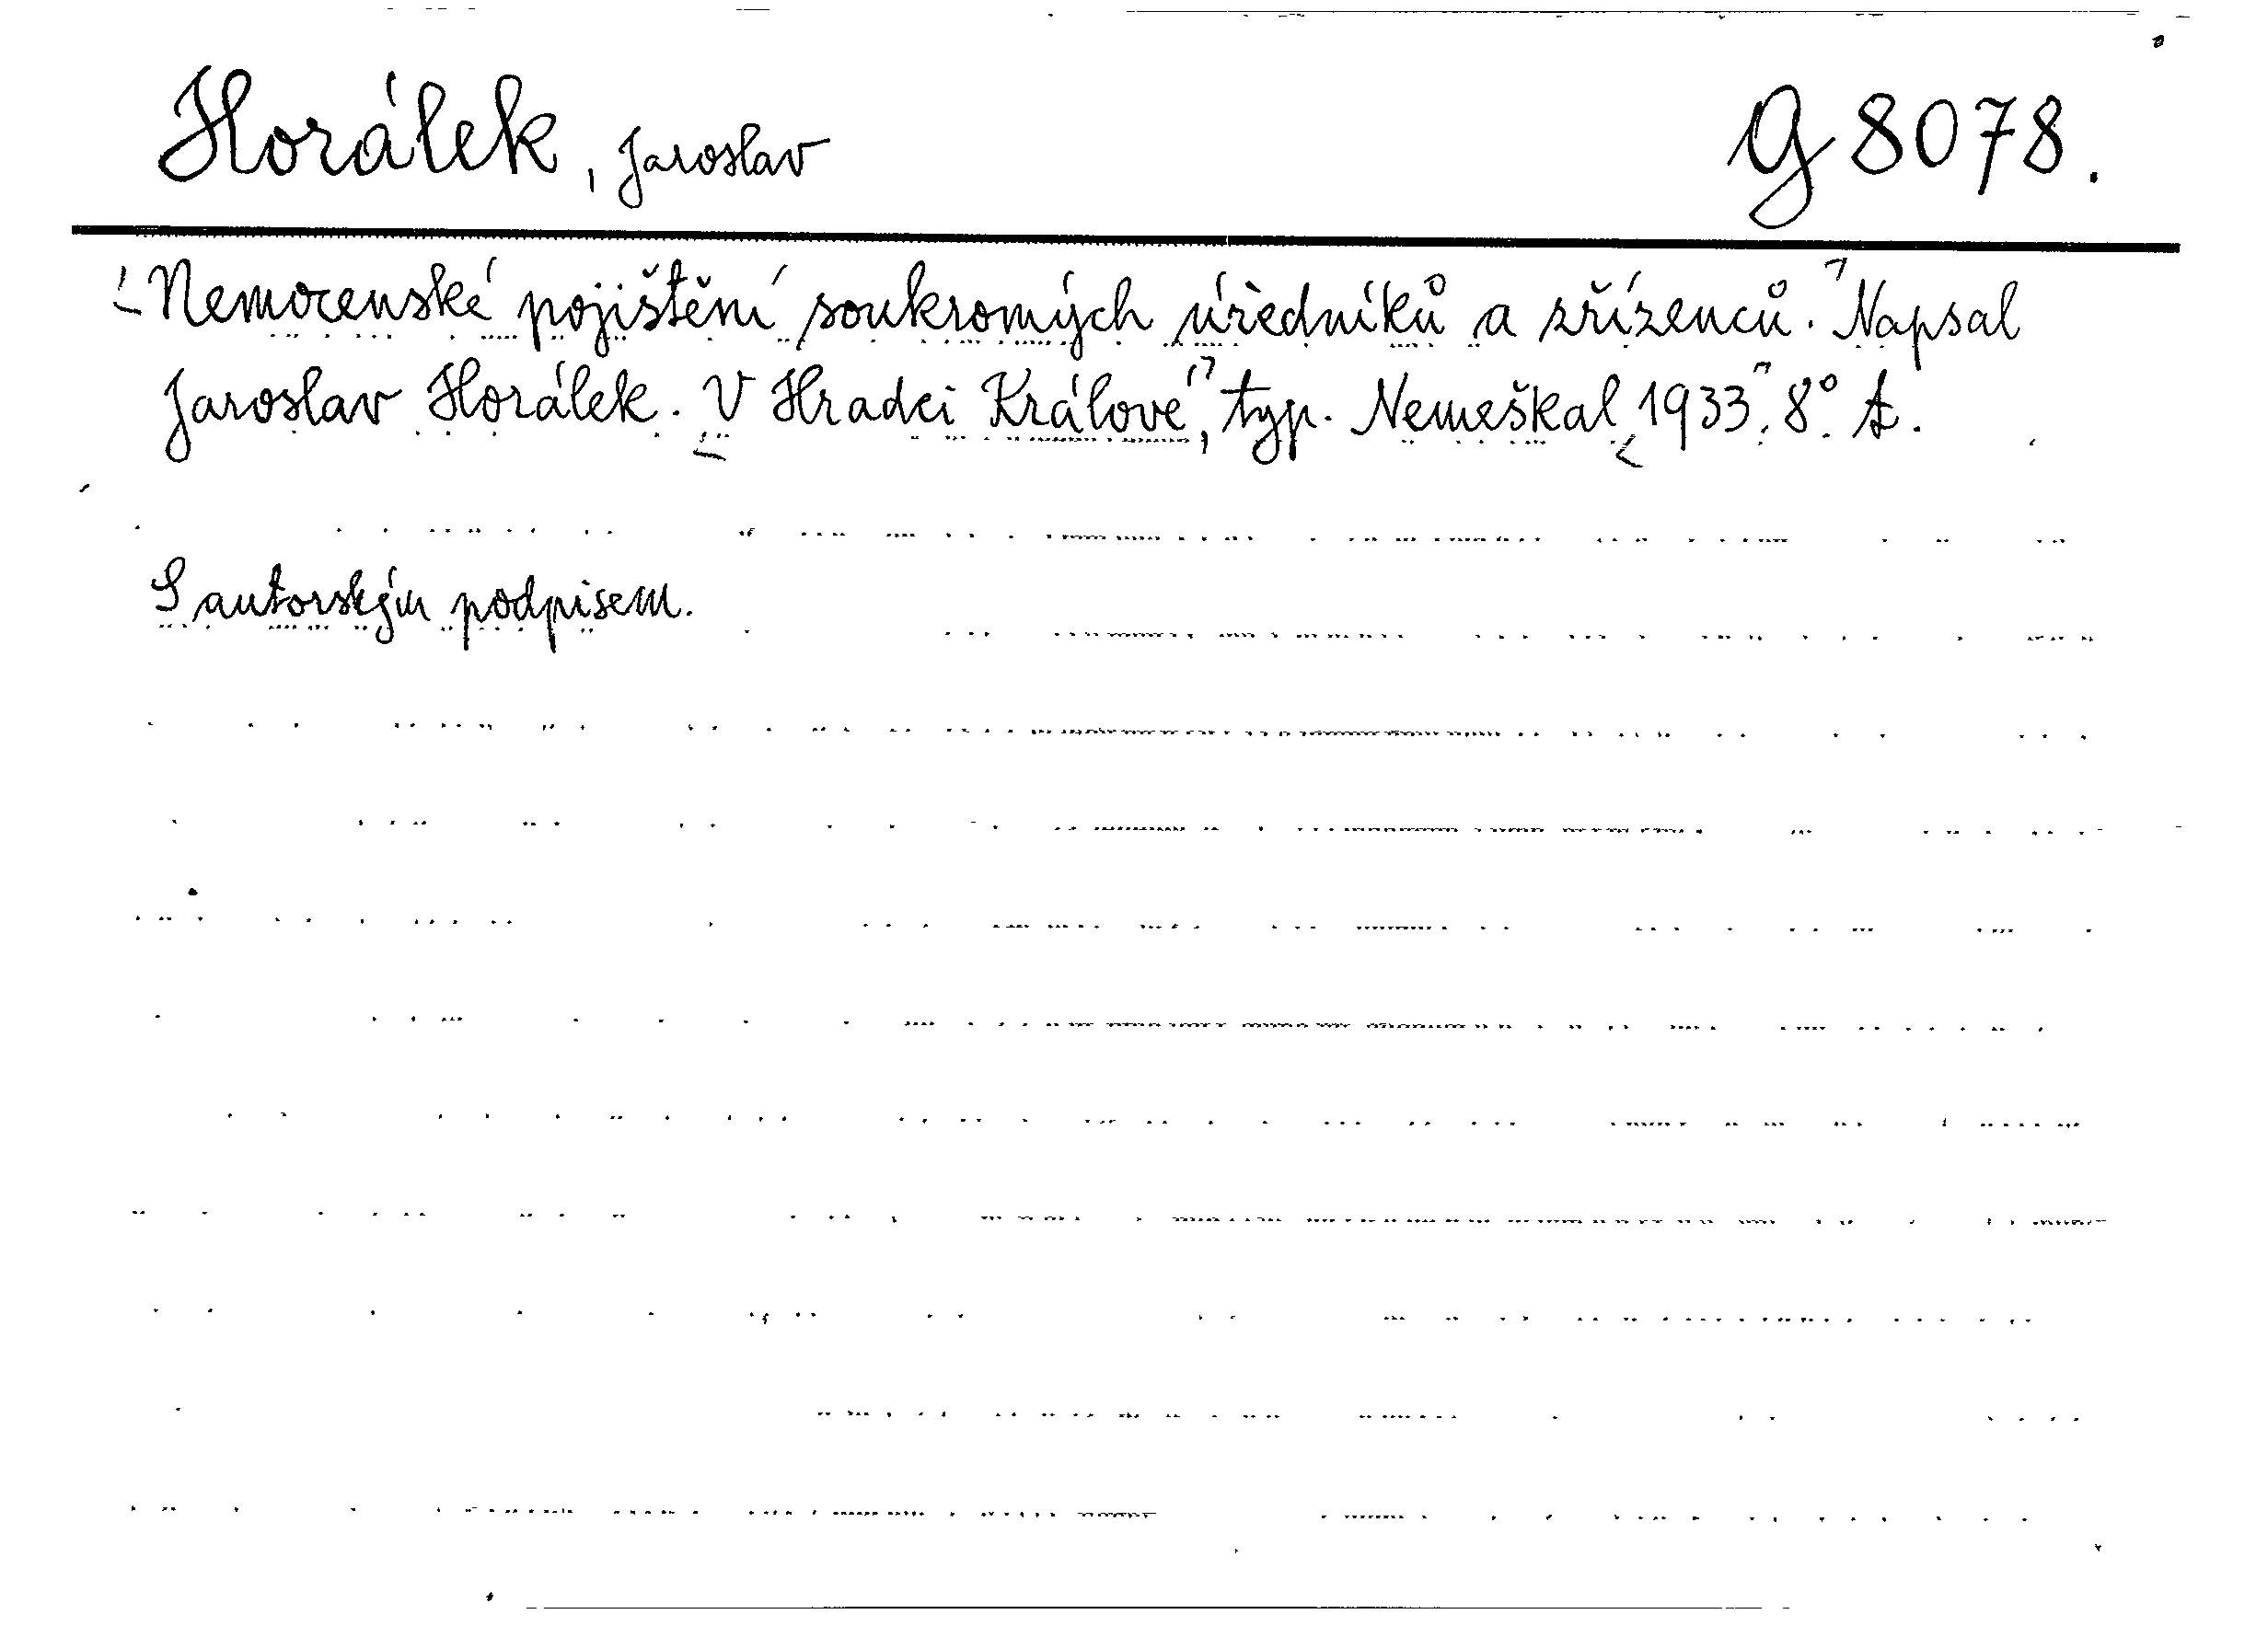 Horálek, Jaroslav G 8078.
Nemocenské pojištění soukromých úředníků a zřízenců. Napsal
Jaroslav Horálek. V Hradci Králové, typ. Nemeškal 1933. 8°
S autorským podpisem.